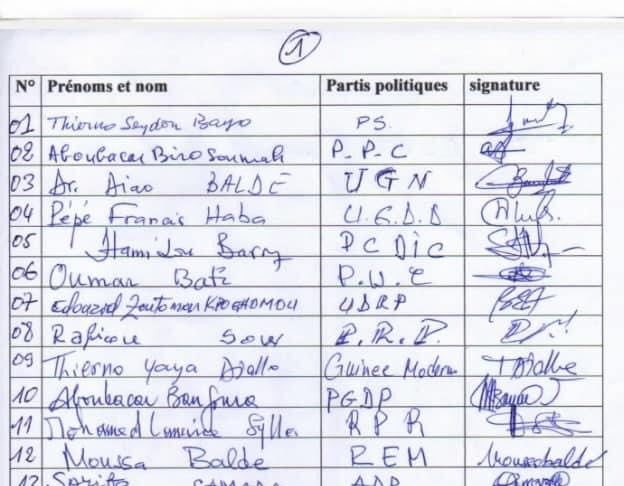 1
N° Prénoms et nom Partis politiques signature
01 Thierno Seydou Bayo PS.
02 Aboubacar Biro Soumah P-P-C
03 Dr. BALDE UGN
04 Pépé Francis Haba U.G.D.D
05 Hamidou Barry PCDIC
06 Oumar
07 Edouard KPOGHOMOU UDRP
08 Rafiou Sow P.R.P.
09 Thierno Yaya Diallo Guinee Moderne TDiallo
10 Aboubacar Bangoura PGDP
11 Mohamed Lamine Sylla RPR
12 Moussa Balde REM Moussabalde
13 CAMARA ADP